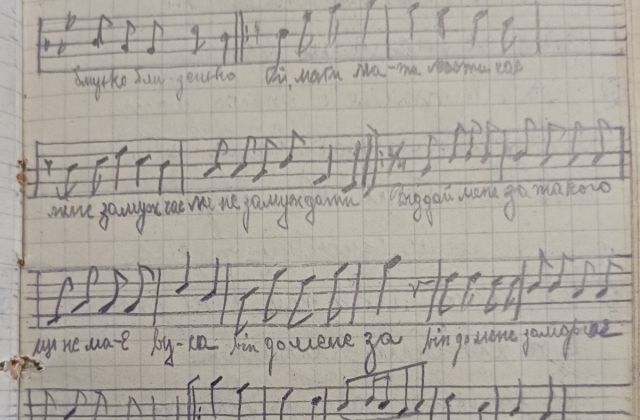 близько бли-зенько Ой, мати ма-ти
мене замуж час ти не замуж дати Віддай мене за такого
що не ма-є ву-са він до мене за він до мене заморгає